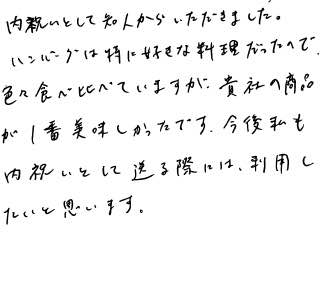 内祝いとして知人からいただきました。
ハンバーグは特に好きな料理だったので、
色々食べ比べていますが、貴社の商品
が1番美味しかったです。今後私も
内祝いとして送る際には、利用し
たいと思います。